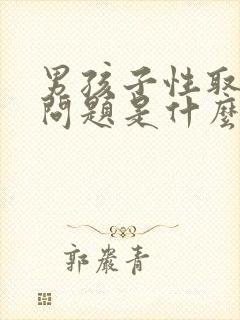 男孩子性取
問題是什麼
郭嚴青